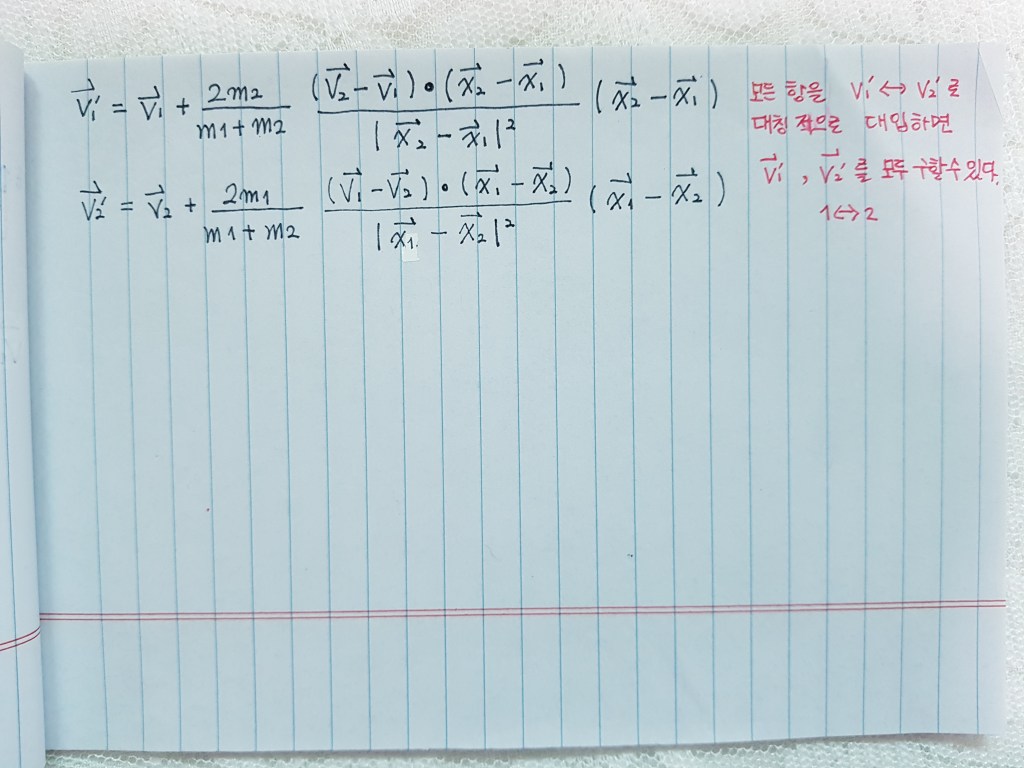 v⃗₁′ = v⃗₁ + 2m2/(m1+m2) (v⃗₂−v⃗₁)•(x⃗₂−x⃗₁)/|x⃗₂−x⃗₁|² (x⃗₂−x⃗₁)
v⃗₂′ = v⃗₂ + 2m1/(m1+m2) (v⃗₁−v⃗₂)•(x⃗₁−x⃗₂)/|x⃗₁−x⃗₂|² (x⃗₁−x⃗₂)
모든 항을 v₁′↔v₂′로
대칭적으로 대입하면
v⃗₁′, v⃗₂′를 모두 구할수있다.
1↔2